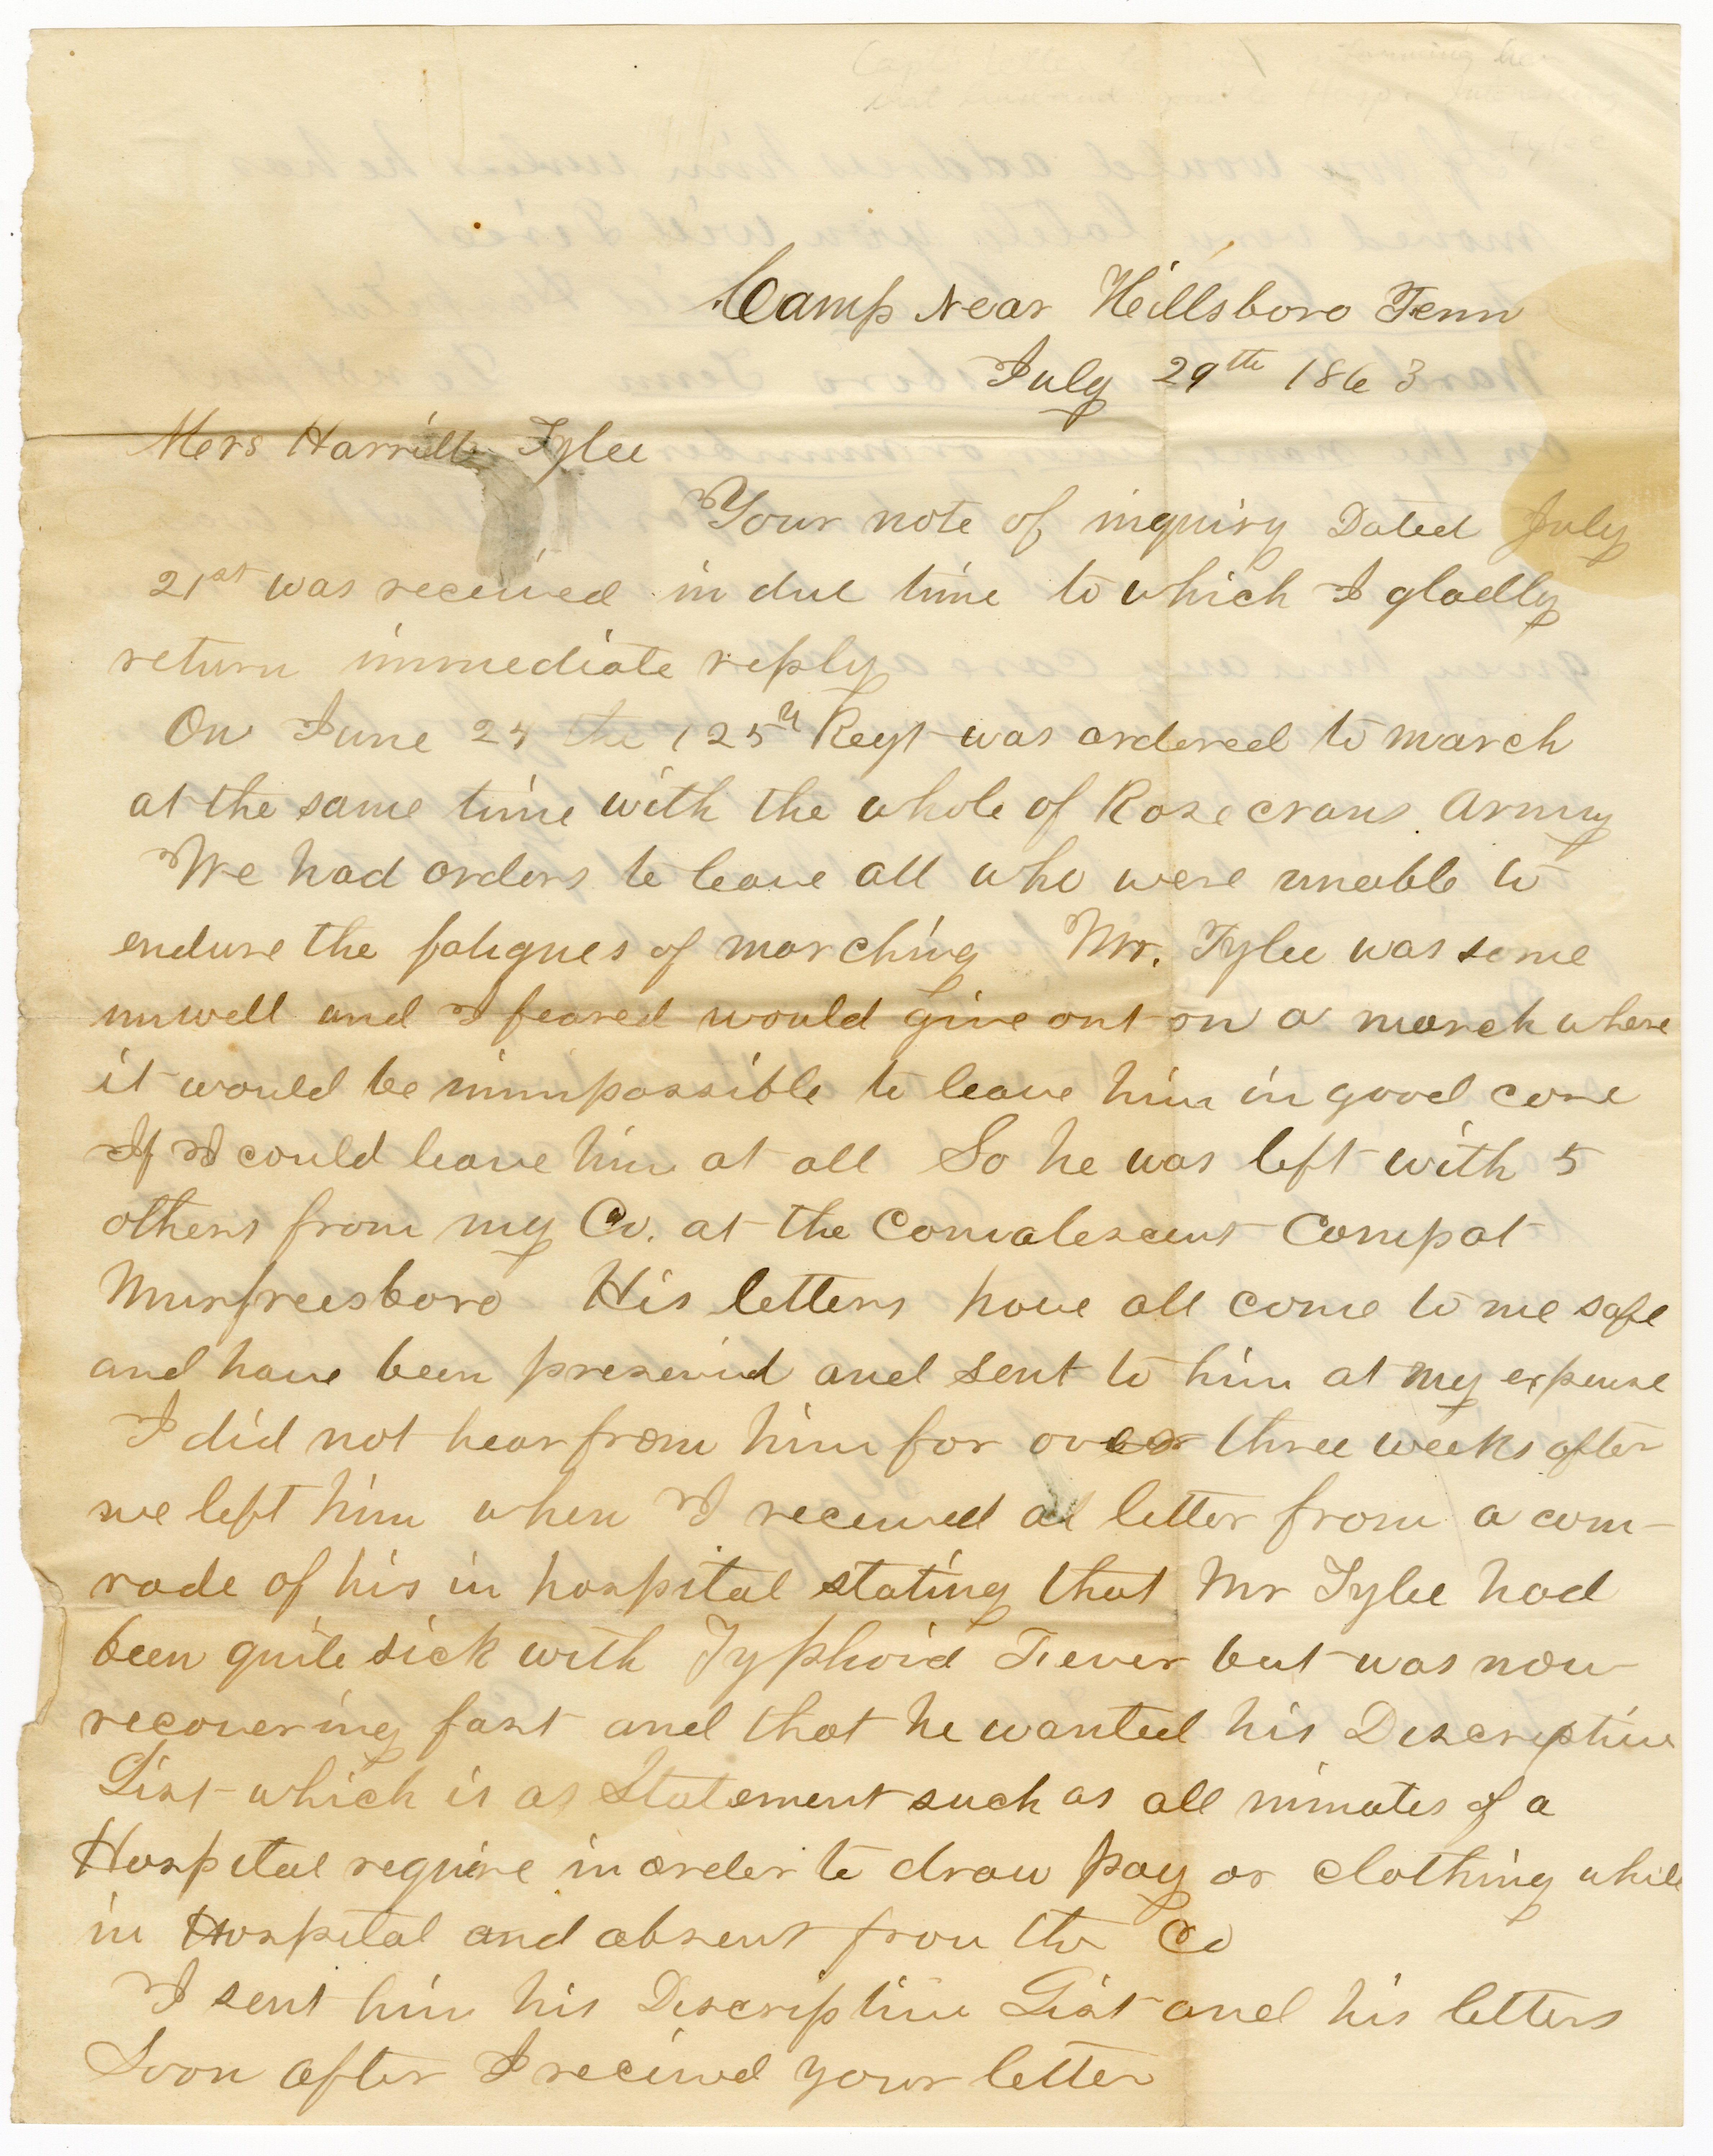 Camp Near Hillsboro Tenn
July 29th 1863
Mers Harriett Tylee
Your note of inquiry Dated July
21st was received in due time to which I gladly
return immediate reply
On June 24 the 125th Regt was ordered to march
at the same time with the whole of Rosecrans Army
We had orders to leave all who were unable to
endure the fatigues of marching Mr. Tylee was some
unwell and I feared would give out on a march where
it would be immpossible to leave him in good care
If I could leave him at all So he was left with 5
others from my Co. at the Convalescent Camp at
Murfreesboro His letters have all come to me safe
and have been preservd and sent to him at my expense
I did not hear from him for over three weeks after
we left him when I received a letter from a com-
rade of his in hospital stating that Mr Tylee had
been quite sick with Typhoid Fever but was now
recovering fast and that he wanted his Descriptive
List which is as Statement such as all inmates of a
Hospital require in order to draw pay or clothing while
in Hospital and absent from the Co
I sent him his Descriptive List and his letters
Soon after I recieved your letter